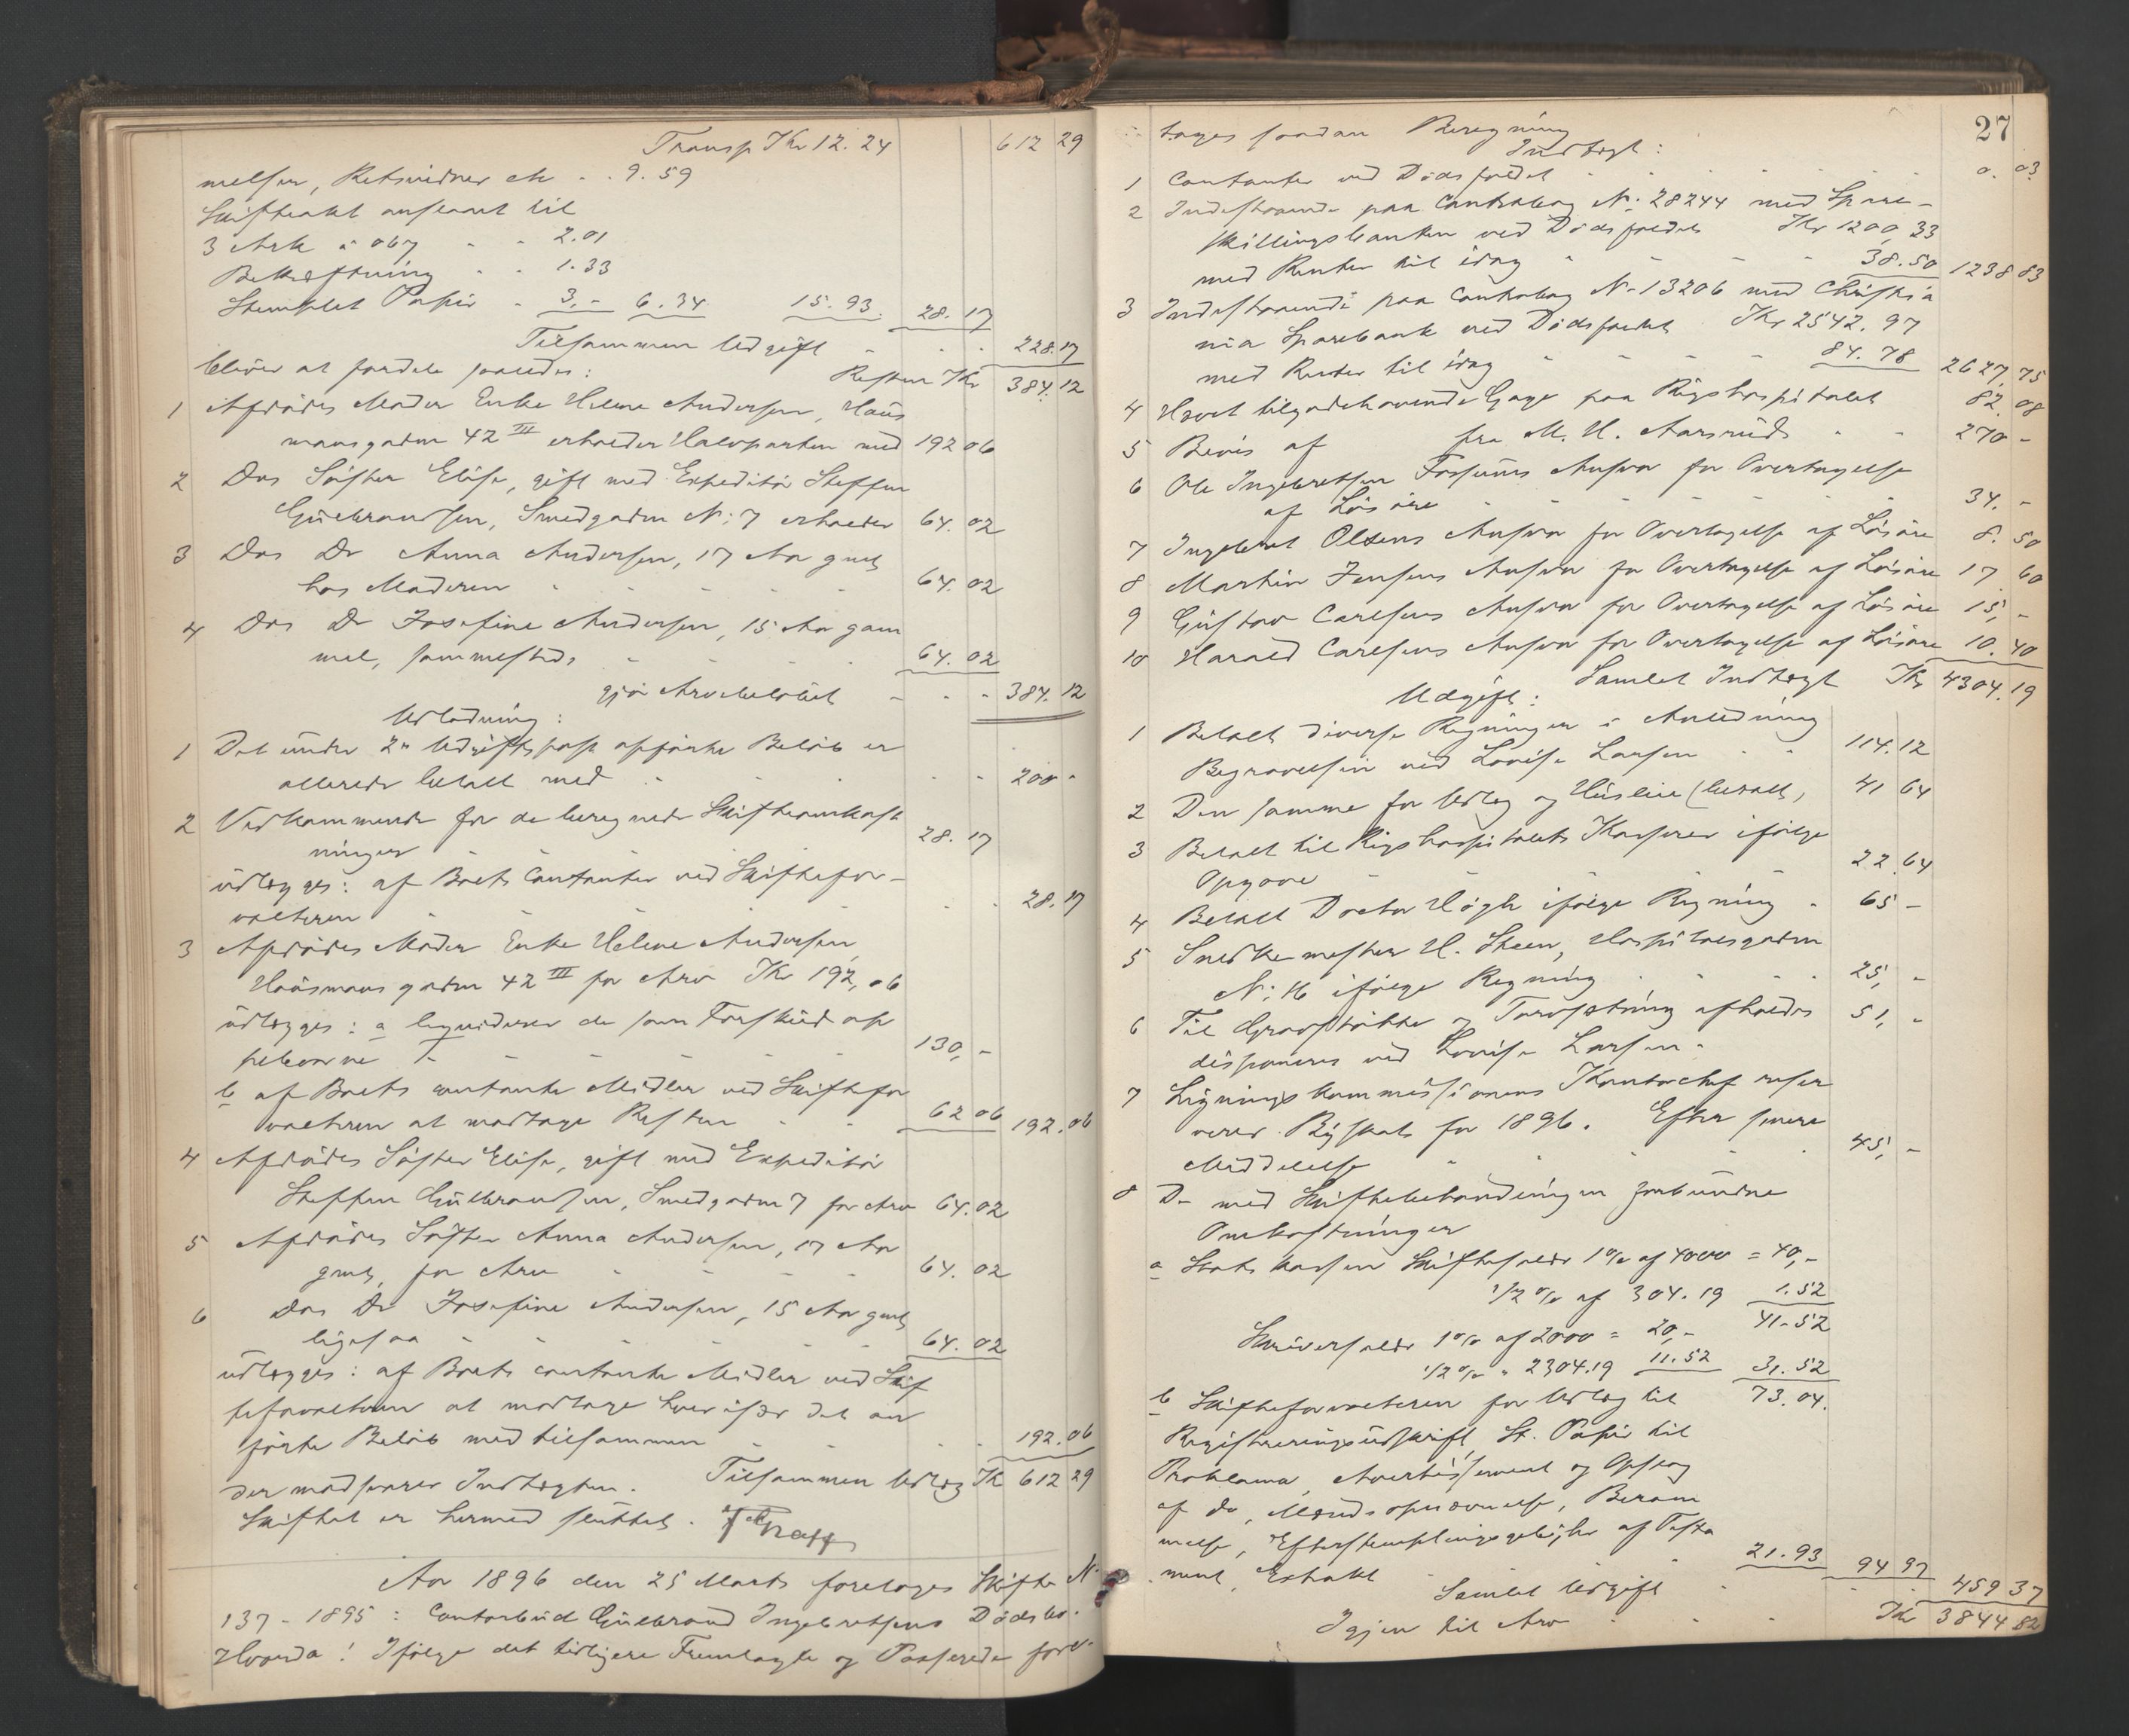 Transp Kr 12.24 612 29
melsen, Retsvidner etc - . 9.59
Skifteakt anslaaet til
3 Ark a 067 - - 2.01
Bekræftning - - 1.33
Stemplet Papir - 3,- 6.34. 15.93. 28.17
Tilsammen Udgift - - - 228.17
bliver at fordele saaledes: Resten Kr 384.12
1 Afdødes Moder Enke Helene Andersen, Haus
mansgaden 42 III erholder Halvparten med 192 06
2 Dos Søster Elise, gift med Expeditør Steffen
Gulbrandsen, Smedgaden N: 7 erholder 64.02
3 Dos Do Anna Andersen, 17 Aar gml
hos Moderen - - - - - 64.02
4 Dos Do Josefine Andersen, 15 Aar gam
mel, sammesteds - - - - 64.02
gjør Arvebeløbet - - - 384.12
Udlodning:
1 Det under 2n Udgiftspost opførte Beløb er
allerede betalt med - - - - 200 -
2 Vedkommende for de beregnede Skifteomkost
ninger - - 28.17
udlægges: af Boets Contanter ved Skiftefor-
valteren - - - - - 28.17
3 Afdødes Moder Enke Helene Andersen,
Hausmans gaden 42 III for Arv Kr 192,06
udlægges: a liquiderer de som Forskud op
pebaarne - - - - - 130,-
b af Boets contante Midler ved Skiftefor
valteren at modtage Resten - - 62 06 192.06
4 Afdødes Søster Elise, gift med Expeditør
Steffen Gulbrandsen, Smedgaden 7 for Arv 64.02
5 Afdødes Søster Anna Andersen, 17 Aar
gml, for Arv - - - - 64.02
6 Dos Do Josefine Andersen, 15 Aar gml,
ligesaa - - - - - 64.02
udlægges: af Boets contante Midler ved Skif
teforvalteren at modtage hver især det an
førte Beløb med tilsammen - - - 192.06
der modsvarer Indtægten. Tilsammen Udlæg Kr 612 29
Skiftet er hermed sluttet.
Aar 1896 den 25 Marts foretoges Skifte N
137 - 1895: Contorbud Gulbrand Ingebretsens Dødsbo.
Hvorda! Ifølge det tidligere Fremlagte og Passerede fore-
27
tages saadan Beregning
Indtægt:
1 Contanter ved Dødsfaldet - - - - - 0.03
2 Indestaaende paa Contrabog N: 28244 med Spare-
skillingsbanken ved Dødsfaldet Kr 1200,33
med Renter til idag - - - - 38.50 1238 83
3 Indestaaende paa Contrabog N- 13206 med Christia
nia Sparebank ved Dødsfaldet Kr 2542.97
med Renter til idag - - - - 84.78 2627,75
4 Hævet tilgodehavende Gage paa Rigshospitalet 82.08
5 Bevis af fra M. H. Aarsruds - - 270 -
6 Ole Ingebretsen Fossums Ansvar for Overtagelse
af Løsøre - - - - - - 34.-
7 Ingebret Olsens Ansvar for Overtagelse af Løsøre 8.50
8 Martin Jensens Ansvar for Overtagelse af Løsøre 17 60
9 Gustav Carlsens Ansvar for Overtagelse af Løsøre 15,-
10 Harald Carlsens Ansvar for Overtagelse af Løsøre 10.40
Samlet Indtægt Kr 4304.19
Udgift:
1 Betalt diverse Regninger i Anledning
Begravelsen ved Lovise Larsen - - 114.12
2 Den samme for Udlæg og Husleie (betalt) 41 64
3 Betalt til Rigshospitalets Kasserer ifølge
Opgave - - - - - 22.64
4 Betalt Doctor Høgh ifølge Regning - 65 -
5 Snedkermester H. Steen, Hospitalsgaden
N: 16 ifølge Regning - - - - 25,-
6 Til Gravstøtte og Torvsætning afholdes 51,-
disponeres ved Lovise Larsen -
7 Ligningskommissionens Kontorchef reser
verer Byskat for 1896. Efter senere
Meddelelse - - - - 45,-
8 De med Skiftebehandlingen forbundne
Omkostninger
a Statskassen Skifteafgift 1% af 4000 = 40,-
1/2 % af 304.19 1.52
41.52
Skriversalær 1% af 2000 = 20,-
1/2 % " 2304.19 11.52 31.52
73.04.
b Skifteforvalteren for Udlæg til
Registreringsudskrift, St. Papir til
Proklama, Avertissement og Opslag
af do, Mændsopnævnelse, Beram
melse, Efterstemplingsgebyhr af Testa
ment, Extrakt - - - 21.93 94 97
Samlet Udgift - - - 459 37
Igjen til Arv - - - Kr 3844 82